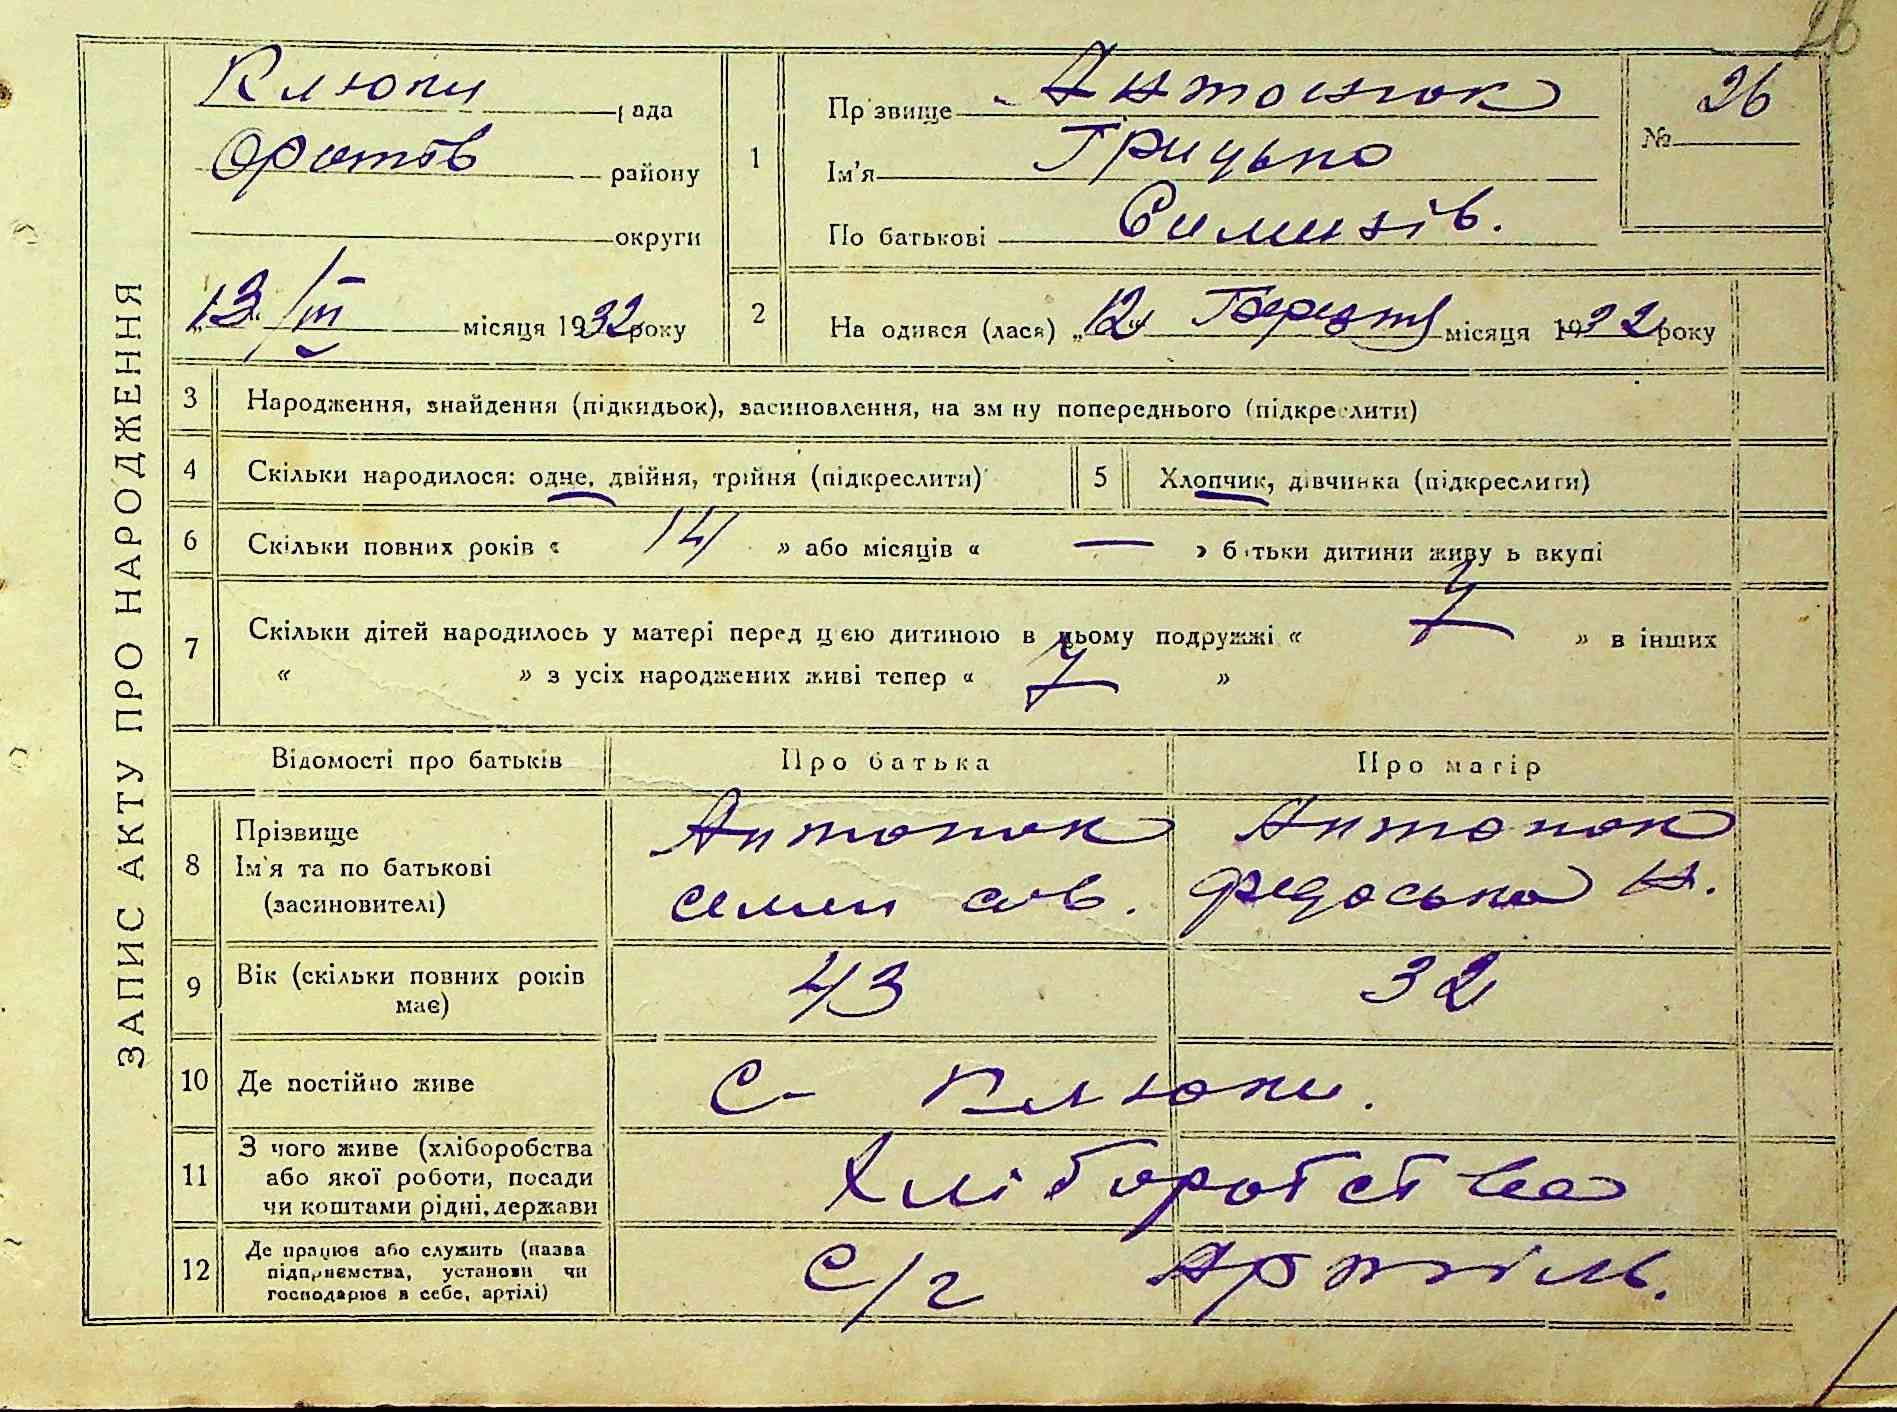 26
ЗАПИС АКТУ ПРО НАРОДЖЕННЯ
Клюки рада
Оратів району
округи
„13" /III місяця 1932 року
1
Пр звище Антонюк
Ім'я Грицько
По батькові Симинів.
№ 26
2
На одився (лася) „12" Березня місяця 1932 року
3 Народження, знайдення (підкидьок), засиновлення, на зм ну попереднього (підкреслити)
4 Скільки народилося: одне, двійня, трійня (підкреслити)
5 Хлопчик, дівчинка (підкреслити)
6 Скільки повних років « 14 » або місяців « — » б тьки дитини живу ь вкупі
7 Скільки дітей народилось у матері перед цією дитиною в цьому подружжі « 7 » в інших
« » з усіх народжених живі тепер « 7 »
Відомості про батьків Про батька Про матір
8 Прізвище
Ім'я та по батькові
(засиновителі)
Антонюк
Семен сав.
Антонюк
Федоська Н.
9 Вік (скільки повних років
має)
43 32
10 Де постійно живе с- Клюки.
11 З чого живе (хліборобства
або якої роботи, посади
чи коштами рідні, держави
Хліборобства
12 Де працює або служить (назва
підприємства, установи чи
господарює в себе, артілі)
с/г Артіль.